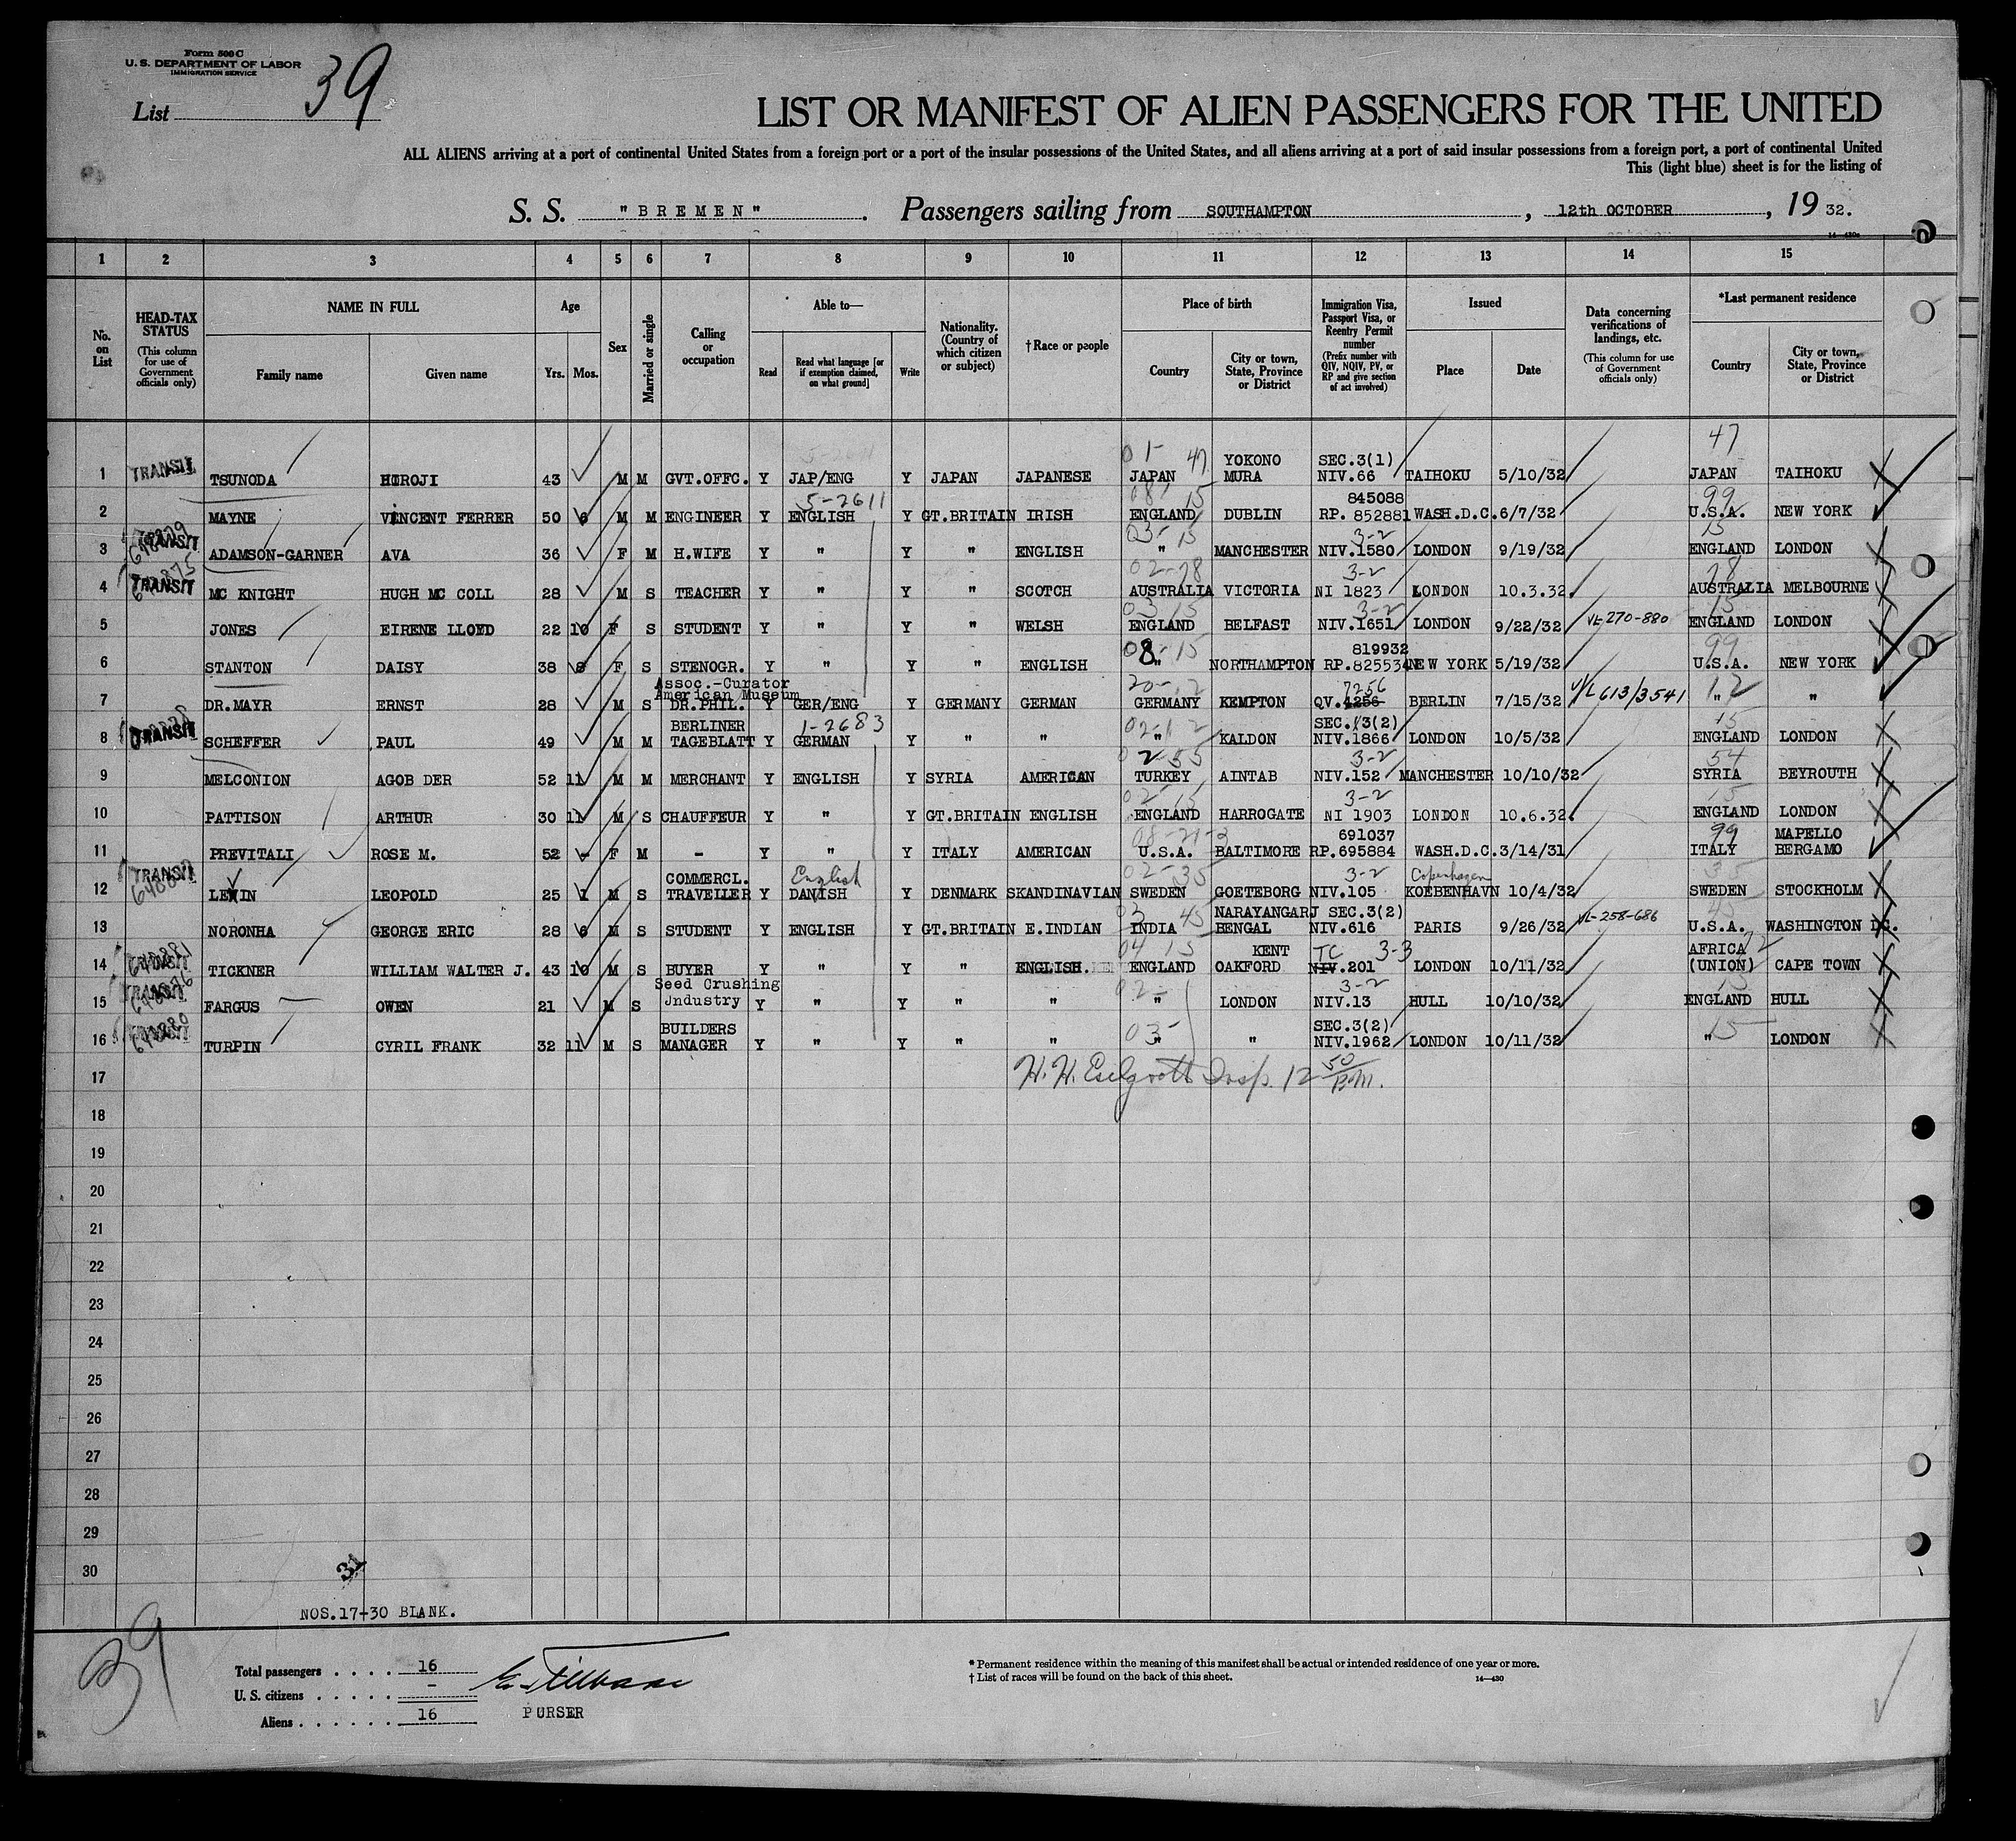 Form 500 C
U. S. DEPARTMENT OF LABOR
IMMIGRATION SERVICE
List 39
LIST OR MANIFEST OF ALIEN PASSENGERS FOR THE UNITED
ALL ALIENS arriving at a port of continental United States from a foreign port or a port of the insular possessions of the United States, and all aliens arriving at a port of said insular possessions from a foreign port, a port of continental United
This (light blue) sheet is for the listing of
S. S. "BREMEN". Passengers sailing from SOUTHAMPTON, 12th OCTOBER, 19 32.
1 2 3 4 5 6 7 8 9 10 11 12 13 14 15
No. on List
HEAD-TAX STATUS (This column for use of Government officials only)
NAME IN FULL Family name Given name
Age Yrs. Mos.
Sex
Married or single
Calling or occupation
Able to— Read Read what language [or if exemption claimed, on what ground] Write
Nationality. (Country of which citizen or subject)
† Race or people
Place of birth Country City or town, State, Province or District
Immigration Visa, Passport Visa, or Reentry Permit number (Prefix number with QIV, NQIV, PV, or RP and give section of act involved)
Issued Place Date
Data concerning verifications of landings, etc. (This column for use of Government officials only)
*Last permanent residence Country City or town, State, Province or District
1 TRANSIT TSUNODA HIROJI 43 M M GVT.OFFC. Y JAP/ENG Y JAPAN JAPANESE 01- 47 JAPAN YOKONO MURA SEC.3(1) NIV.66 TAIHOKU 5/10/32 47 JAPAN TAIHOKU
2 MAYNE VINCENT FERRER 50 6 M M ENGINEER Y 5-2611 ENGLISH Y GT.BRITAIN IRISH 08 15 ENGLAND DUBLIN 845088 RP. 852881 WASH.D.C. 6/7/32 99 U.S.A. NEW YORK
3 TRANSIT ADAMSON-GARNER AVA 36 F M H.WIFE Y " Y " ENGLISH 03-15 " MANCHESTER 3-2 NIV.1580 LONDON 9/19/32 15 ENGLAND LONDON
4 TRANSIT MC KNIGHT HUGH MC COLL 28 M S TEACHER Y " Y " SCOTCH 02-28 AUSTRALIA VICTORIA 3-2 NI 1823 LONDON 10.3.32. 28 AUSTRALIA MELBOURNE
5 JONES EIRENE LLOYD 22 10 F S STUDENT Y " Y " WELSH 03 15 ENGLAND BELFAST 3-2 NIV.1651 LONDON 9/22/32 VL-270-880 15 ENGLAND LONDON
6 STANTON DAISY 38 8 F S STENOGR. Y " Y " ENGLISH 08-15 " NORTHAMPTON 819932 RP.825534 NEW YORK 5/19/32 99 U.S.A. NEW YORK
7 DR.MAYR ERNST 28 M S Assoc.-Curator American Museum DR.PHIL. Y GER/ENG Y GERMANY GERMAN 20-12 GERMANY KEMPTON 7256 QV.4256 BERLIN 7/15/32 V/L 613/3541 12 " "
8 TRANSIT SCHEFFER PAUL 49 M M BERLINER TAGEBLATT Y 1-2683 GERMAN Y " " 02-12 " KALDON SEC.3(2) NIV.1866 LONDON 10/5/32 15 ENGLAND LONDON
9 MELCONION AGOB DER 52 11 M M MERCHANT Y ENGLISH Y SYRIA AMERICAN 02-55 TURKEY AINTAB 3-2 NIV.152 MANCHESTER 10/10/32 54 SYRIA BEYROUTH
10 PATTISON ARTHUR 30 11 M S CHAUFFEUR Y " Y GT.BRITAIN ENGLISH 02-15 ENGLAND HARROGATE 3-2 NI 1903 LONDON 10.6.32. 15 ENGLAND LONDON
11 PREVITALI ROSE M. 52 - F M - Y " Y ITALY AMERICAN U.S.A. BALTIMORE 691037 RP.695884 WASH.D.C. 3/14/31 99 ITALY MAPELLO BERGAMO
12 TRANSIT LEWIN LEOPOLD 25 1 M S COMMERCL. TRAVELLER Y English DANISH Y DENMARK SKANDINAVIAN 02-35 SWEDEN GOETEBORG 3-2 NIV.105 Copenhagen KOEBENHAVN 10/4/32 35 SWEDEN STOCKHOLM
13 NORONHA GEORGE ERIC 28 6 M S STUDENT Y ENGLISH Y GT.BRITAIN E.INDIAN 03 45 INDIA NARAYANGARJ BENGAL SEC.3(2) NIV.616 PARIS 9/26/32 VL-258-686 45 U.S.A. WASHINGTON DC.
14 TRANSIT TICKNER WILLIAM WALTER J. 43 10 M S BUYER Y " Y " ENGLISH. 04 15 ENGLAND KENT OAKFORD TC 3-3 NIV.201 LONDON 10/11/32 AFRICA (UNION) CAPE TOWN
15 TRANSIT FARGUS OWEN 21 M S Seed Crushing Jndustry Y " Y " " 02- " LONDON 3-2 NIV.13 HULL 10/10/32 15 ENGLAND HULL
16 TRANSIT TURPIN CYRIL FRANK 32 11 M S BUILDERS MANAGER Y " Y " " 03- " " SEC.3(2) NIV.1962 LONDON 10/11/32 15 " LONDON
17 Insp. 12 50 P.M.
18
19
20
21
22
23
24
25
26
27
28
29
30
31
NOS.17-30 BLANK.
39
Total passengers . . . . 16
U. S. citizens . . . . . -
Aliens . . . . . . 16
PURSER
* Permanent residence within the meaning of this manifest shall be actual or intended residence of one year or more.
† List of races will be found on the back of this sheet.
14—430